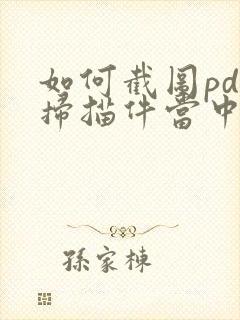 如何截圖pd
掃描件當中
孫家棟